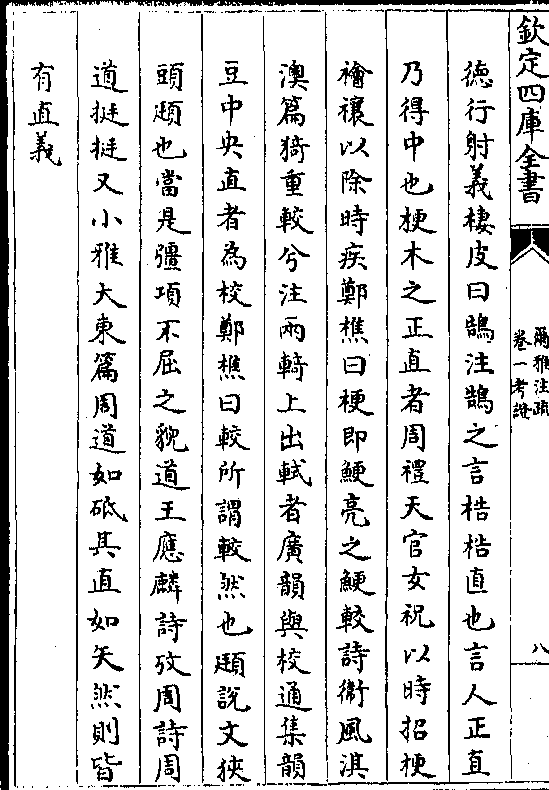 欽定四庫全書
爾雅注疏
卷一考證
八
德行射義棲皮曰鵠注鵠之言梏梏直也言人正直
乃得中也梗木之正直者周禮天官女祝以時招梗
禬禳以除時疾鄭樵曰梗即鯁亮之鯁較詩衞風淇
澳篇猗重較兮注兩輢上出軾者廣韻與校通集韻
豆中央直者為校鄭樵曰較所謂較然也頲說文狹
頭頲也當是彊項不屈之貌道王應麟詩攷周詩周
道挺挺又小雅大東篇周道如砥其直如矢然則皆
有直義